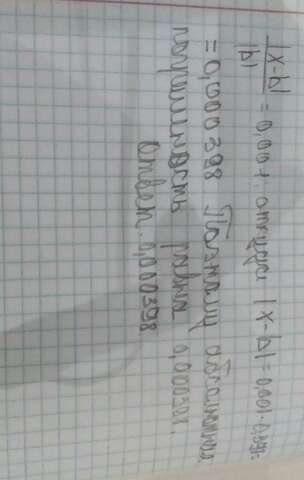 |x-b|/|b| = 0,001, откуда |x-b| = 0,001·0,398=
= 0,000398 Поэтому абсолютная
погрешность равна 0,000398.
Ответ. 0,000398.